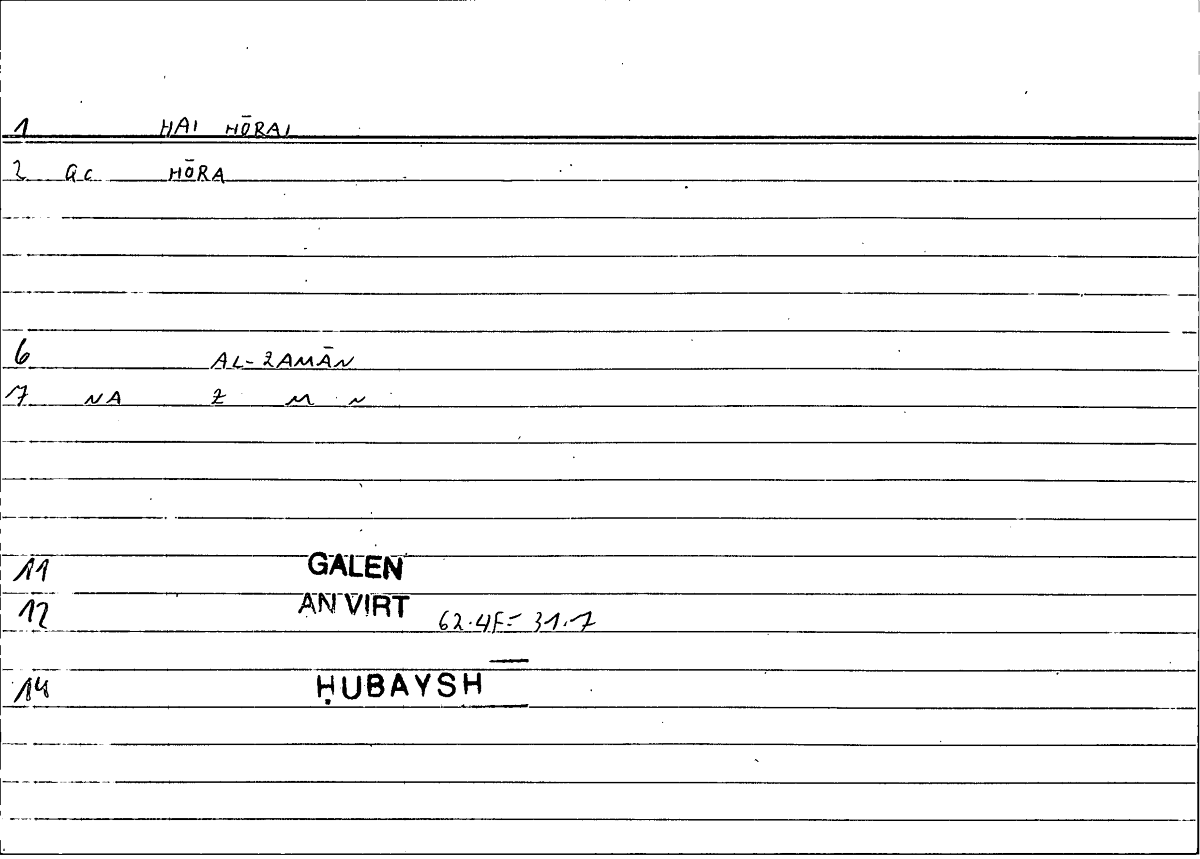 1 HAI HŌRAI
2 GC HŌRA
6 AL-ZAMĀN
7 NA Z M N
11 GALEN
12 AN VIRT 62.4F= 31.7
14 ḤUBAYSH